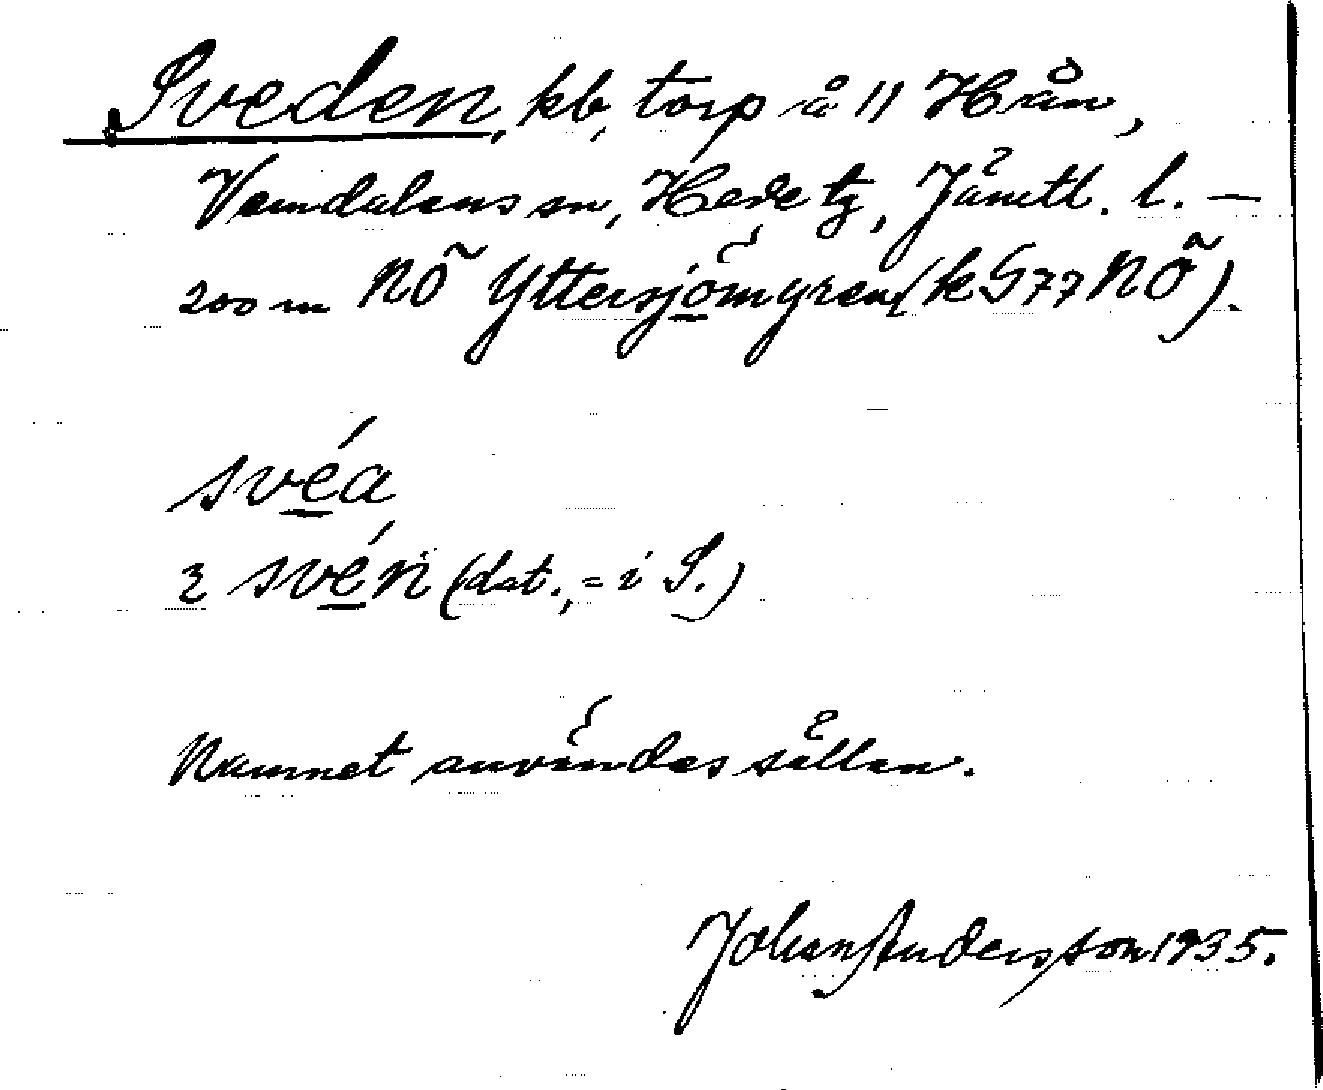 Sveden, kb, torp å 11 Hån,
Vemdalens sn, Hede tg, Jämtl. l. —
200 m NÖ Yttersjömyren (k G77 NÖ).
svéa
svén (dat., = i S.)
Namnet användes sällan.
Johan Andersson 1935.